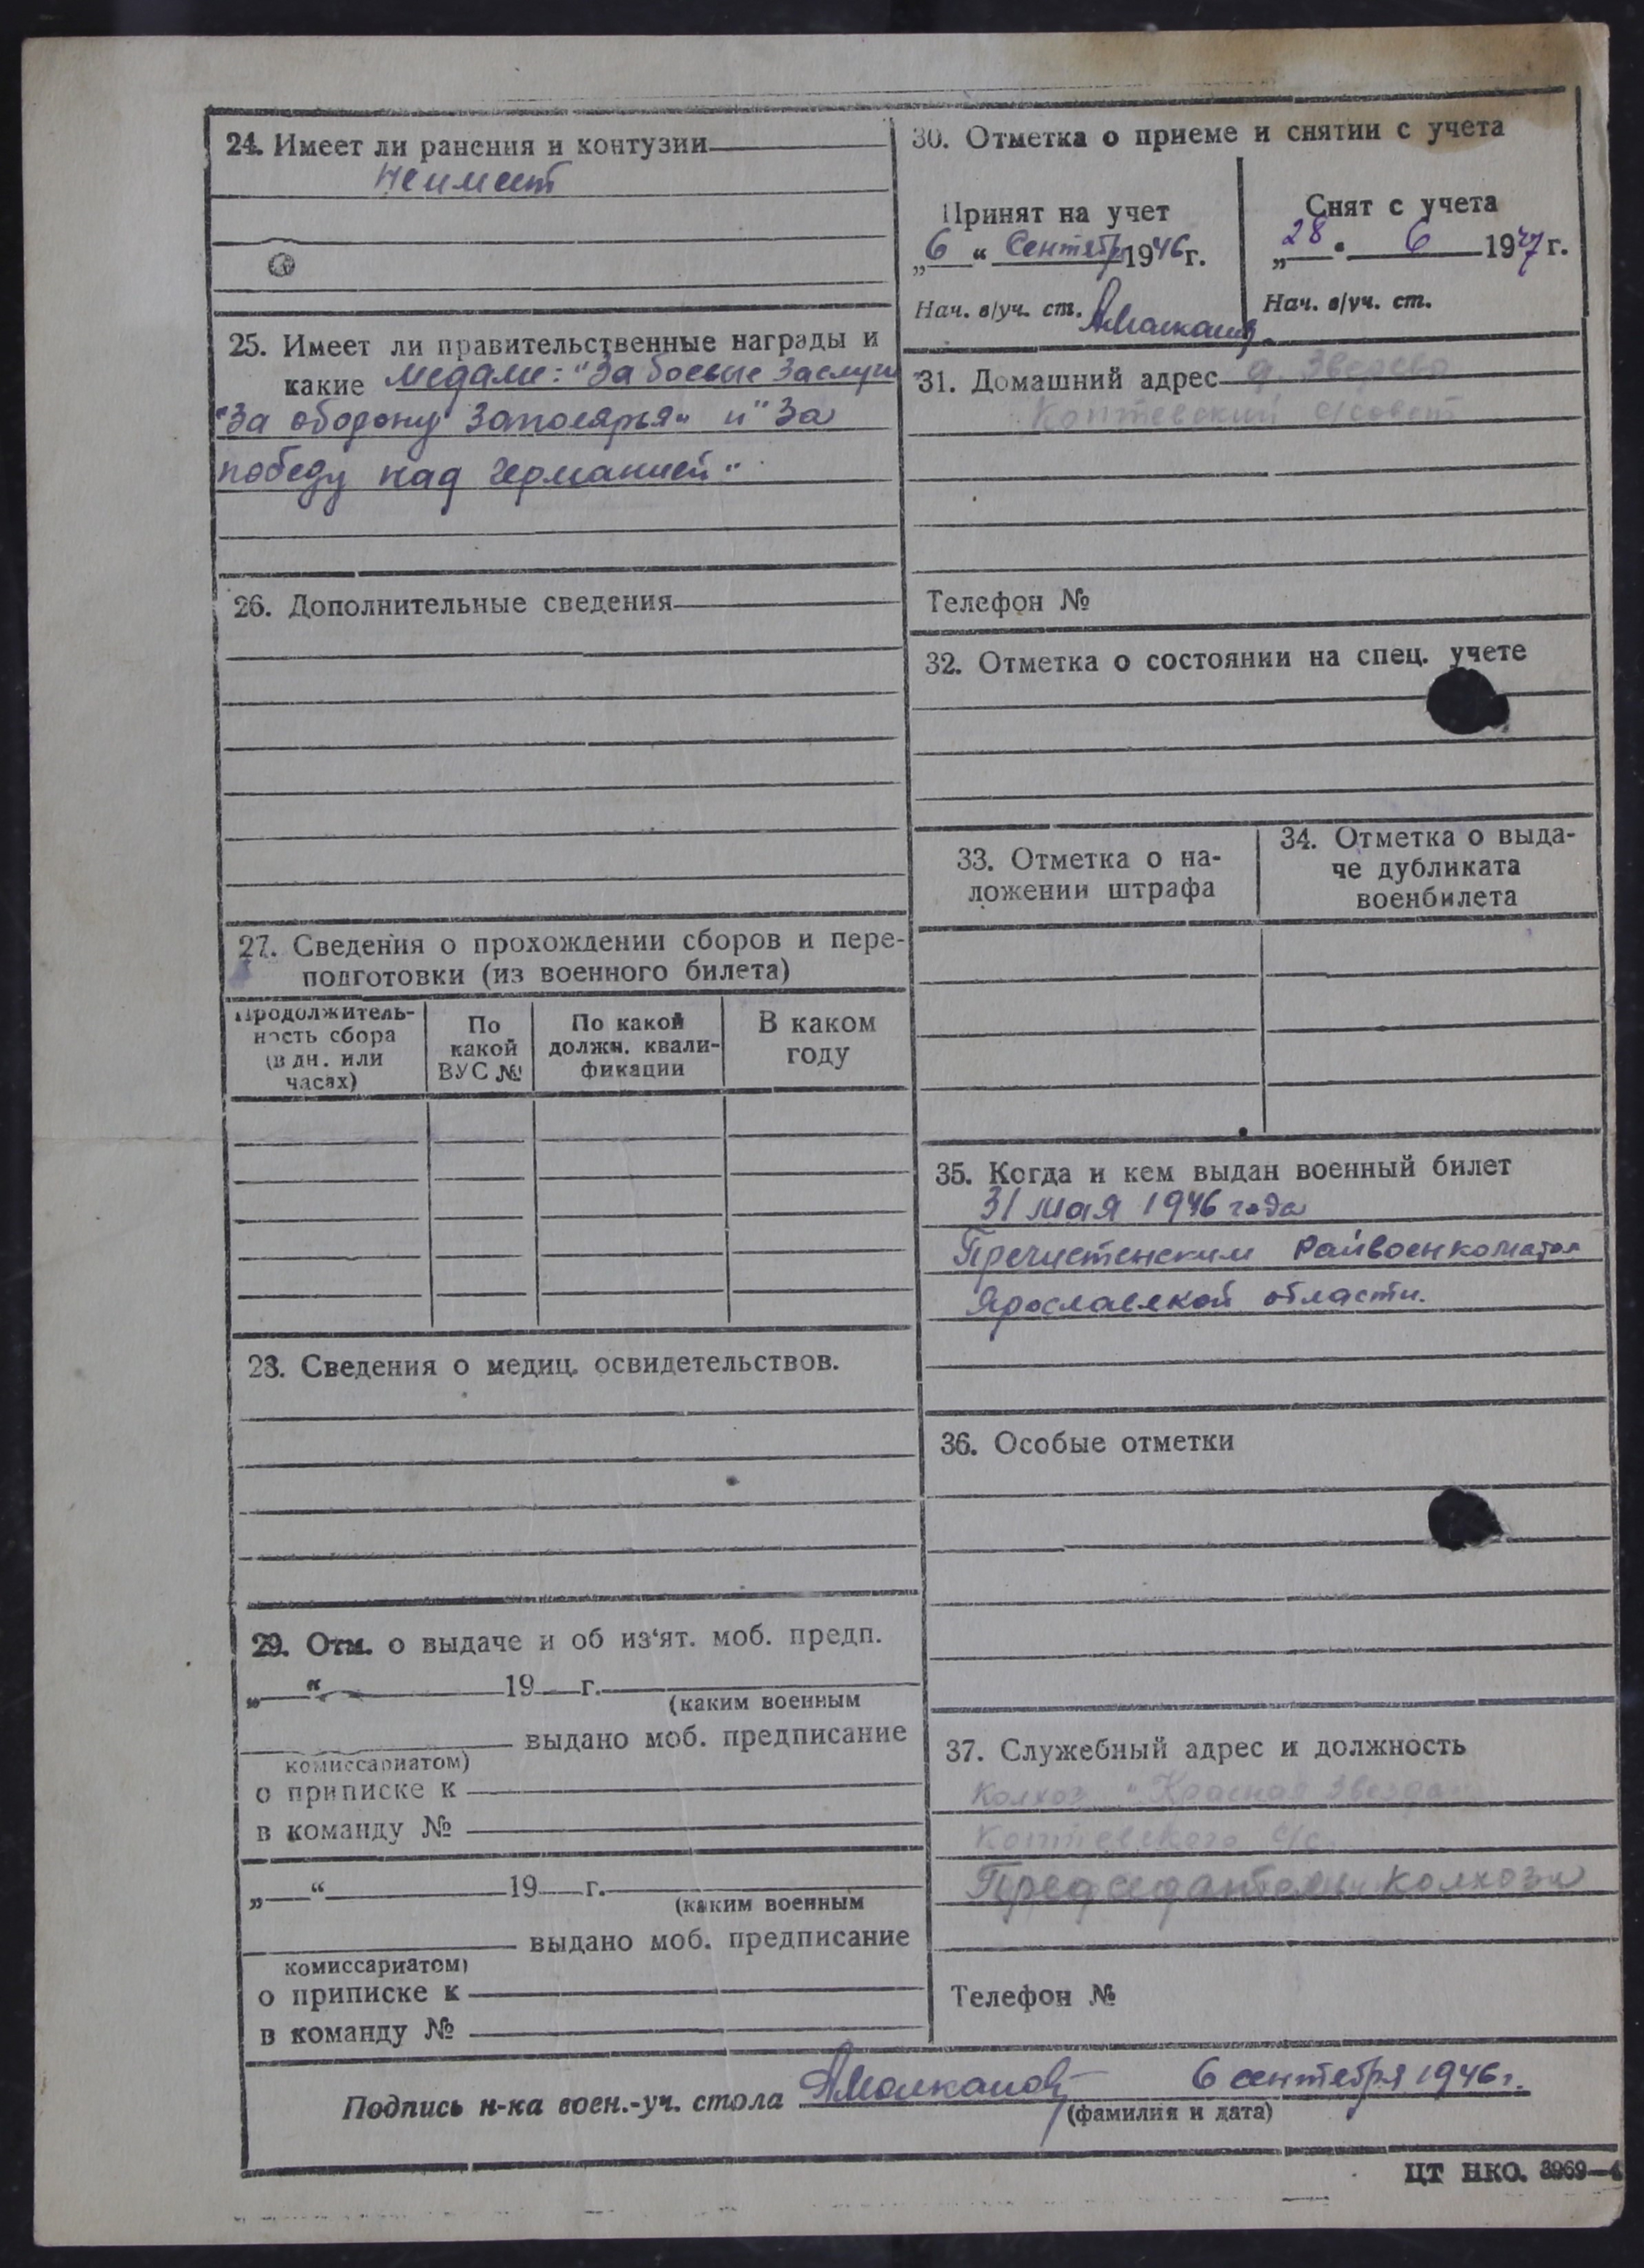 24. Имеет ли ранения и контузии
Не имеет
25. Имеет ли правительственные награды и
какие Медали: "За боевые Заслуги"
"За оборону Заполярья" и "За
победу над Германией".
26. Дополнительные сведения
27. Сведения о прохождении сборов и пере-
подготовки (из военного билета)
Продолжитель-
ность сбора
(в дн. или
часах)
По
какой
ВУС №
По какой
должн. квали-
фикации
В каком
году
28. Сведения о медиц. освидетельствов.
29. Отм. о выдаче и об из'ят. моб. предп.
„ “ 19 г.
(каким военным
выдано моб. предписание
комиссариатом)
о приписке к
в команду №
„ “ 19 г.
(каким военным
выдано моб. предписание
комиссариатом)
о приписке к
в команду №
30. Отметка о приеме и снятии с учета
Принят на учет
„6“ Сентябр 1946 г.
Нач. в/уч. ст.
Снят с учета
„28“ 6 1947 г.
Нач. в/уч. ст.
31. Домашний адрес д. Зверево
Коптевский с/совет
Телефон №
32. Отметка о состоянии на спец. учете
33. Отметка о на-
ложении штрафа
34. Отметка о выда-
че дубликата
военбилета
35. Когда и кем выдан военный билет
31 мая 1946 года
Пречистенским Райвоенкоматом
Ярославской области.
36. Особые отметки
37. Служебный адрес и должность
Колхоз "Красная Звезда"
Коптевского с/с
Председатель колхоза
Телефон №
Подпись н-ка воен.-уч. стола 6 сентября 1946 г.
(фамилия и дата)
ЦТ НКО. 3969—4